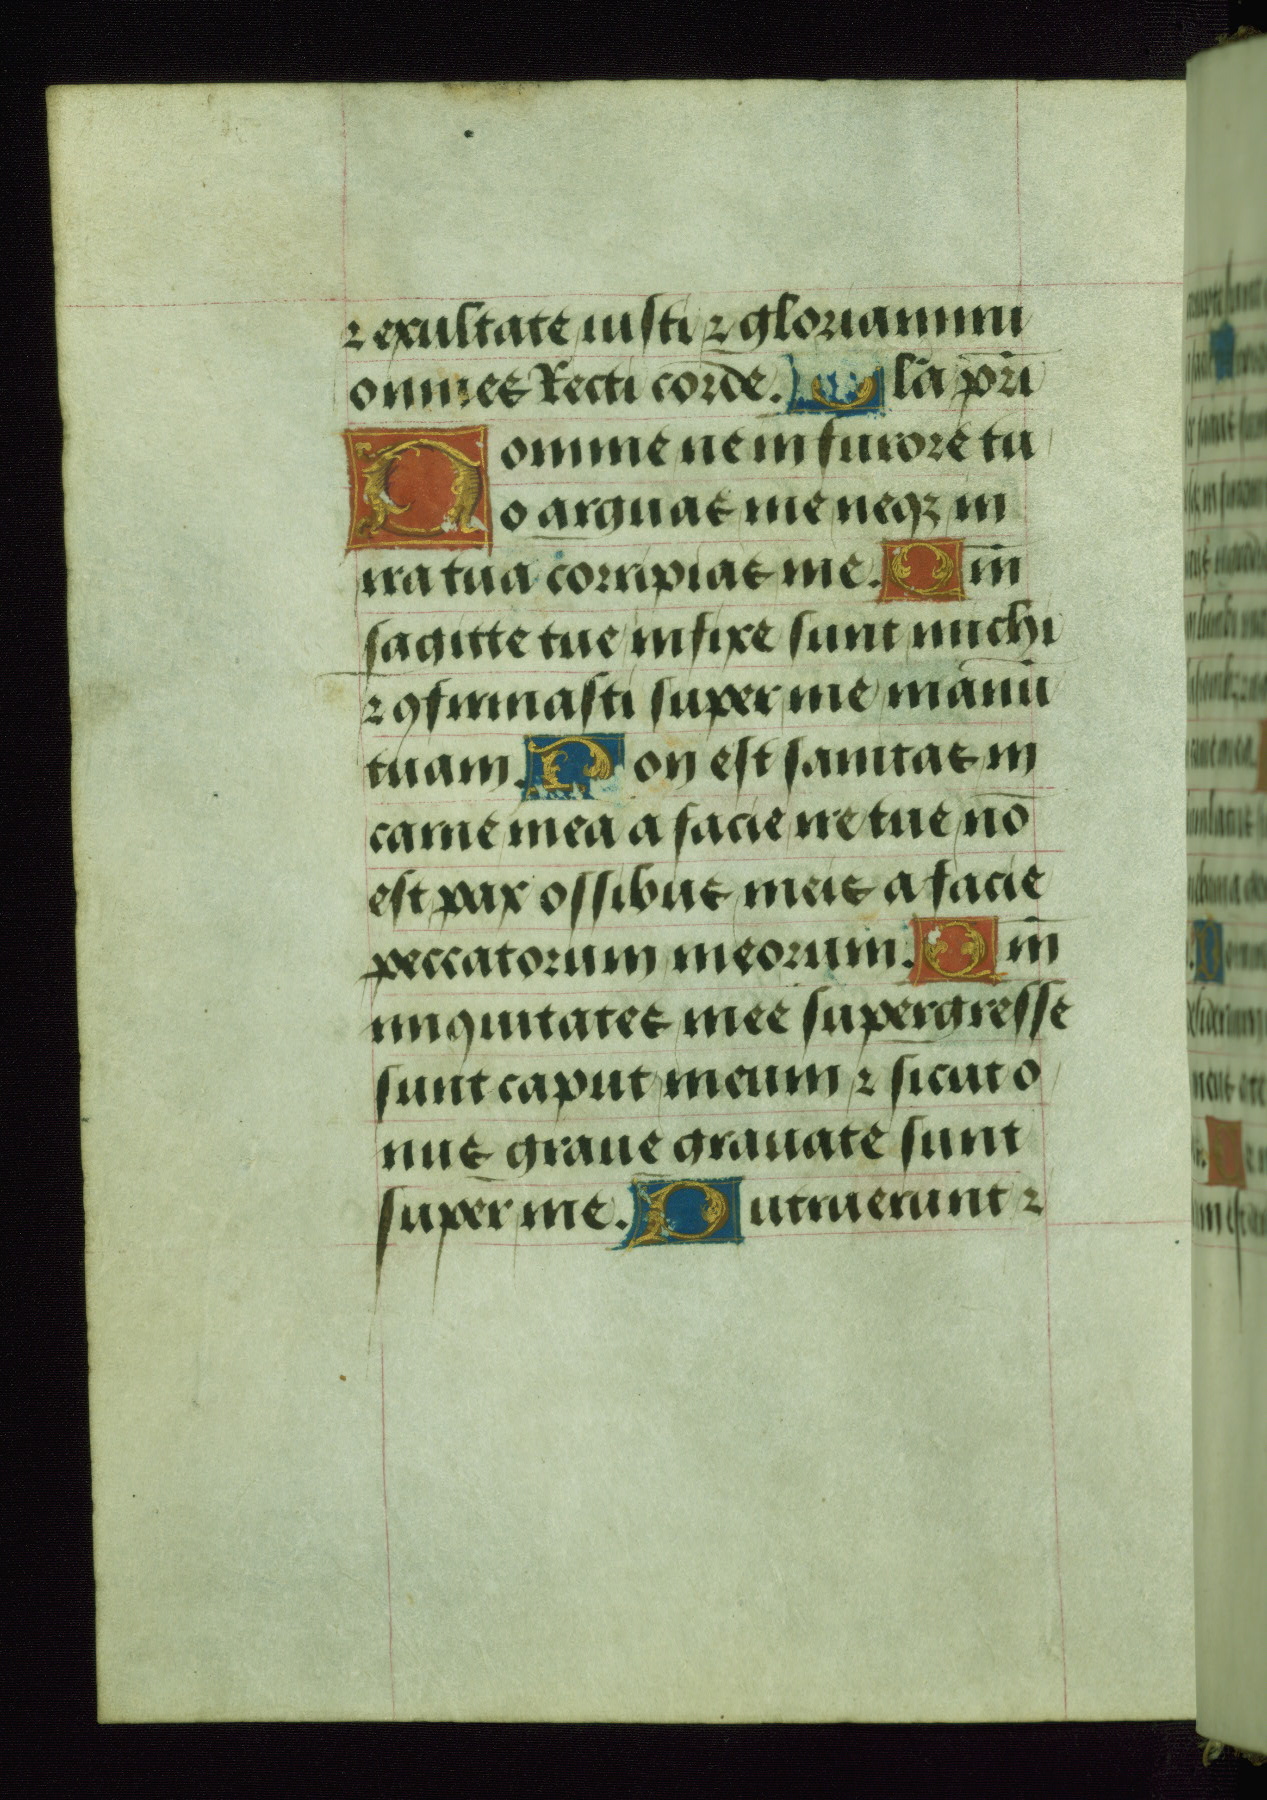 ⁊ exultate iusti ⁊ gloriamini
omnes Recti corde. Glā pr̄i
Domine ne in furore tu
o arguas me neqꝫ in
ira tua corripias me. Qm̄
sagitte tue infixe sunt michi
⁊ ꝯfirmasti super me manū
tuam. Non est sanitas in
carne mea a facie ire tue nō
est pax ossibus meis a facie
peccatorum meorum. Qm̄
iniquitates mee supergresse
sunt caput meum ⁊ sicut o
nus graue grauate sunt
super me. Putruerunt ⁊